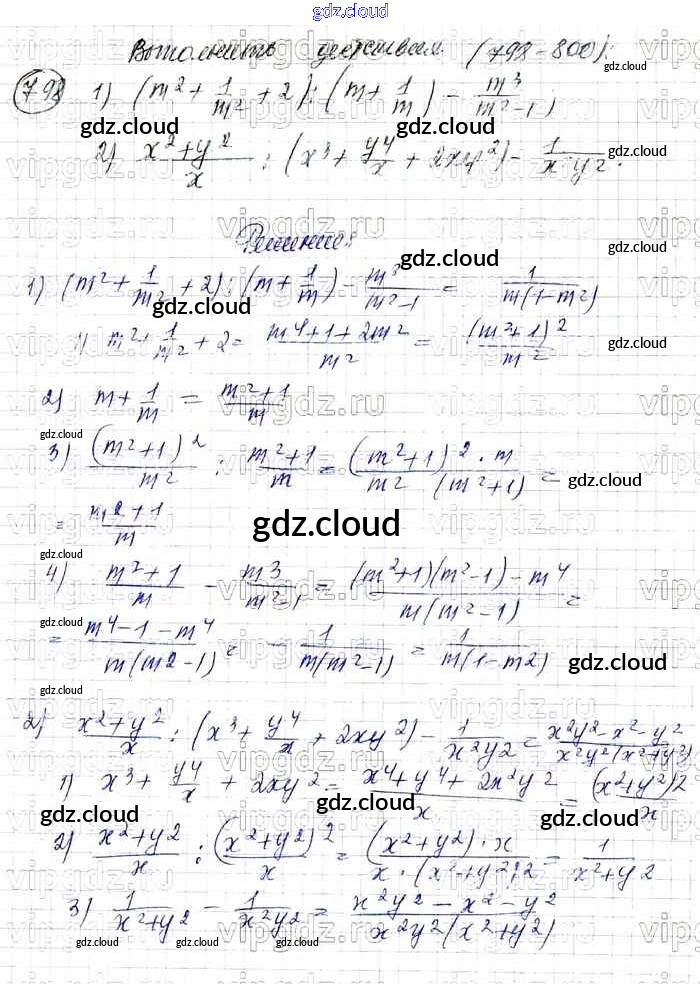 gdz.cloud
Выполнить действия (798-800):
798 1) (m² + 1/m² + 2) : (m + 1/m) - m³/(m²-1)
gdz.cloud gdz.cloud gdz.cloud
2) (x²+y²)/x : (x³ + y⁴/x + 2xy²) - 1/(x²y²).
Решение:
1) (m² + 1/m² + 2) : (m + 1/m) - m³/(m²-1) = 1/(m(1-m²))
gdz.cloud gdz.cloud
1) m² + 1/m² + 2 = (m⁴+1+2m²)/m² = (m²+1)²/m²
gdz.cloud
2) m + 1/m = (m²+1)/m
gdz.cloud
3) (m²+1)²/m² : (m²+1)/m = ((m²+1)² · m)/(m² (m²+1)) =
gdz.cloud
= (m²+1)/m
gdz.cloud
gdz.cloud
4) (m²+1)/m - m³/(m²-1) = ((m²+1)(m²-1) - m⁴)/(m(m²-1)) =
gdz.cloud
= (m⁴-1-m⁴)/(m(m²-1)) = - 1/(m(m²-1)) = 1/(m(1-m²))
gdz.cloud
gdz.cloud
2) (x²+y²)/x : (x³ + y⁴/x + 2xy²) - 1/(x²y²) = (x²y²-x²-y²)/(x²y²(x²+y²))
1) x³ + y⁴/x + 2xy² = (x⁴+y⁴+2x²y²)/x = (x²+y²)²/x
gdz.cloud gdz.cloud gdz.cloud
2) (x²+y²)/x : (x²+y²)²/x = ((x²+y²) · x)/(x · (x²+y²)²) = 1/(x²+y²)
3) 1/(x²+y²) - 1/(x²y²) = (x²y²-x²-y²)/(x²y²(x²+y²))
gdz.cloud gdz.cloud gdz.cloud